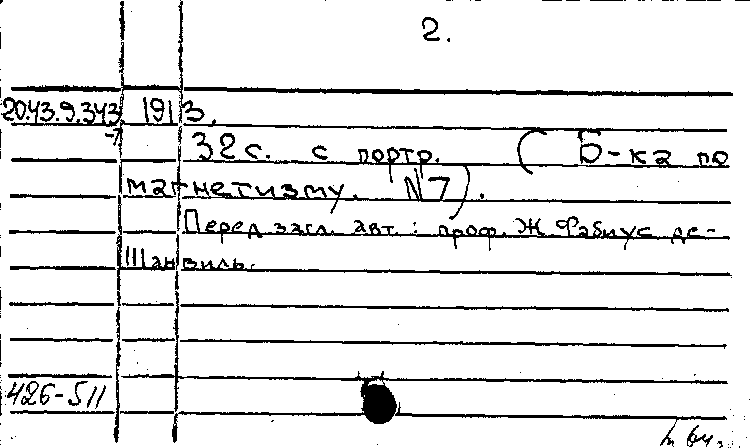 2.
20.43.9.343 1913.
-7
32 с. с портр. (Б-ка по
магнетизму. №7).
Перед загл. авт.: проф. Ж. Фабиус де-
Шанвиль.
426-511